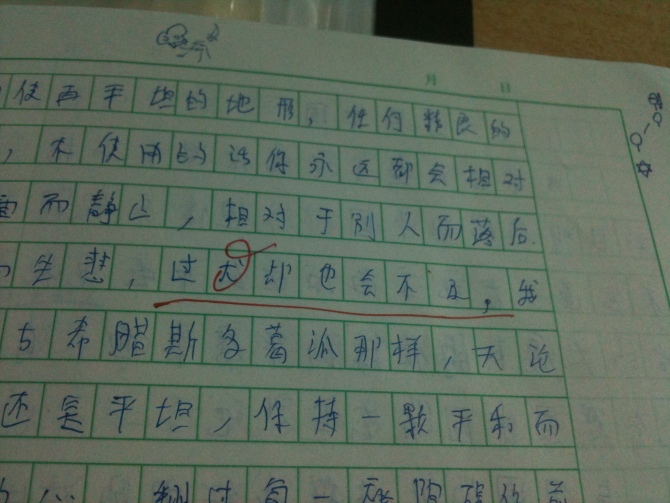 月 日
使再平坦的地形，任何精良的
，不使用的话你永远都会相对
而静止，相对于别人而落后.
生悲，过犹却也会不及，我
与希腊斯多葛派那样，无论
还是平坦，保持一颗平和而